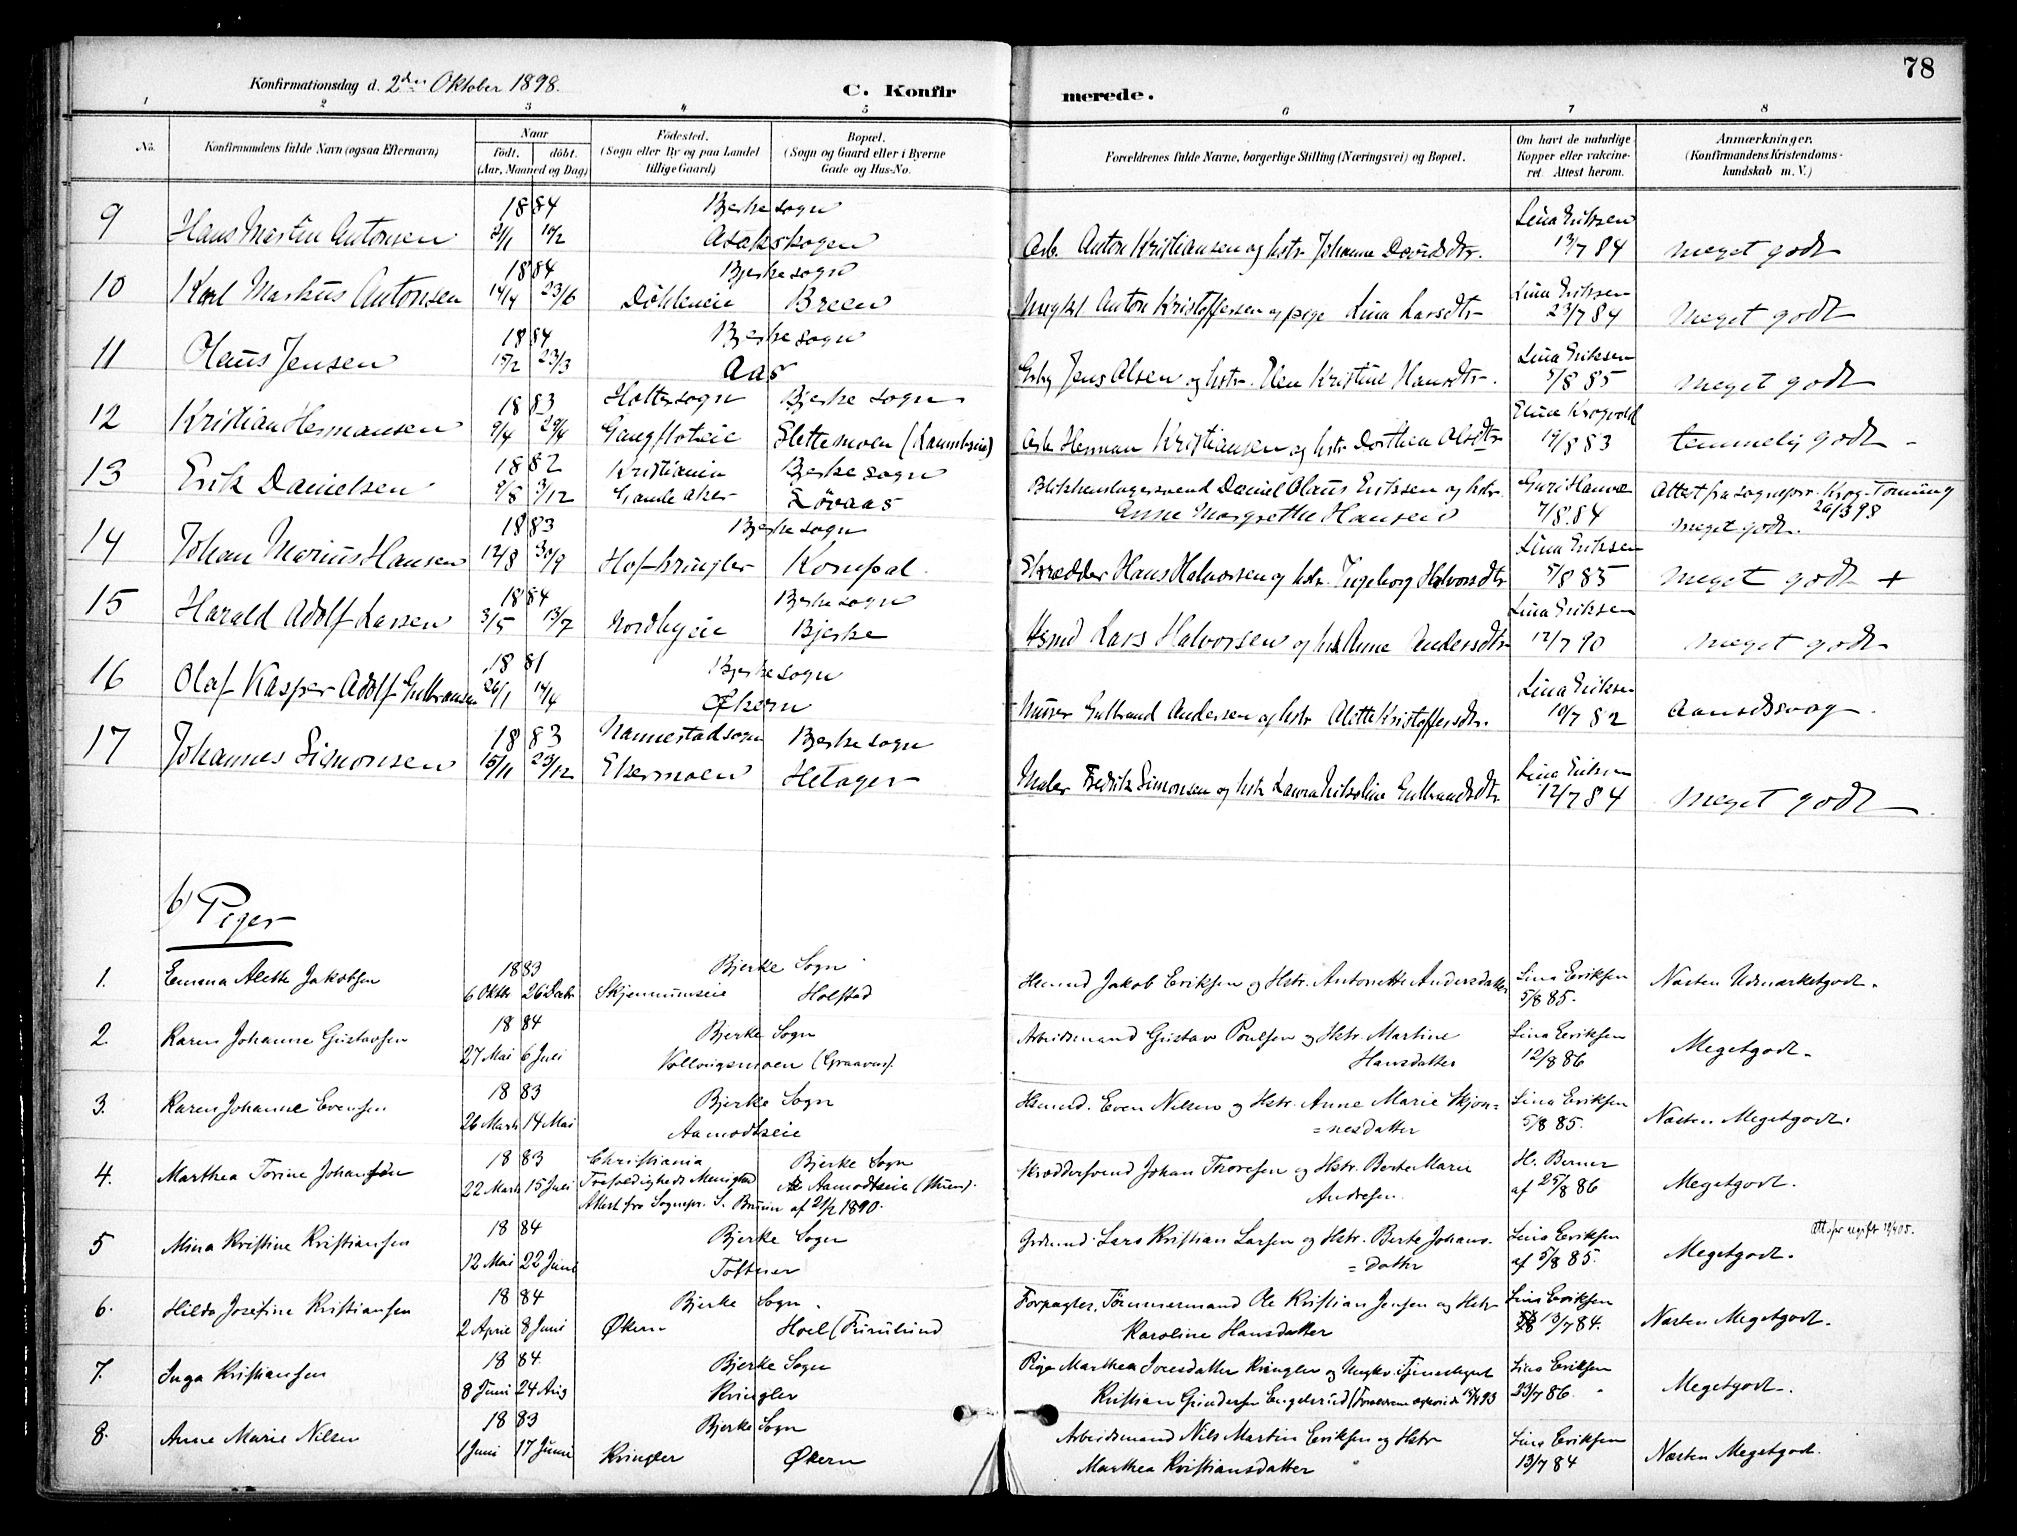 78
Konfirmationsdag d. 2den Oktober 1898.
C. Konfirmerede.
1 2 3 4 5 6 7 8
No.
Konfirmandens fulde Navn (ogsaa Efternavn)
Naar
født. døbt.
(Aar, Maaned og Dag)
Fødested.
(Sogn eller By og paa Landet
tillige Gaard)
Bopæl.
(Sogn og Gaard eller i Byerne
Gade og Hus-No.
Forældrenes fulde Navne, borgerlige Stilling (Næringsvei) og Bopæl.
Om havt de naturlige
Kopper eller vakcine-
ret. Attest herom.
Anmærkninger.
(Konfirmandens Kristendoms-
kundskab m. V.)
1884 Bjerke sogn Lina Eriksen
9 Hans Martin Antonsen 21/1 10/2 Asakskogen Arb. Anton Kristiansen og hstr Johanne Davidsdtr. 13/7 84 Meget godt
1884 Bjerke sogn Lina Eriksen
10 Karl Markus Antonsen 14/4 23/6 Døhleneie Breen Ungkl Anton Kristoffersen og pige Lina Larsdtr 23/7 84 Meget godt
1884 Bjerke sogn Lina Eriksen
11 Olaus Jensen 15/2 23/3 Aas Jens Olsen og hstr. Elen Kristine Hansdtr. 5/8 85 Meget godt
1883 Holter sogn Bjerke sogn Elina Krogvold
12 Kristian Hermansen 9/4 29/4 Gangfloteie Slettemoen Arb Herman Kristiansen og hstr Dorthea Olsdtr 19/8 83 temmelig godt
1882 Kristiania Bjerke sogn
13 Erik Danielsen 9/8 3/12 Gamle aker Løvaas Blikkenslagersvend Daniel Olaus Eriksen og hstr. Guri Attest fra sognepr. Krog-Tonning
Anne Margrethe Hansen 7/8 84 26/3 98
meget godt.
1883 Bjerke sogn Lina Eriksen
14 Johan Marius Hansen 12/8 30/9 Hof-kringler Kompal Skrædder Hans Halvorsen og hstr. Ingeborg Halvorsdtr 5/8 85 Meget godt +
1884 Bjerke sogn Lina Eriksen
15 Harald Adolf Larsen 3/5 13/7 Nordbyeie Bjerke Hsmd Lars Halvorsen og hst. Anne Andersdtr 12/7 90 Meget godt
1881 Bjerke sogn Lina Eriksen
16 Olaf Kasper Adolf Gulbransen 26/1 14/4 Økern Murer Gulbrand Andersen og hstr Alette Kristoffersdtr. 10/7 82 Aandssvag.
1883 Nannestad sogn Bjerke sogn Lina Eriksen
17 Johannes Simonsen 15/11 23/12 Ekermoen Hetager Maler Fredrik Simonsen og hstr Laura Nikoline Gulbrandsdtr 12/7 84 Meget godt.
b) Piger
1883 Bjerke Sogn
1. Emma Alette Jakobsen 6 Oktbr 26 Decbr Skjennumseie Holstad Hsmnd Jakob Eriksen og Hstr. Antonette Andersdatter Lina Eriksen 5/8 85. Næsten Udmærketgodt.
1884 Bjerke Sogn
2. Karen Johanne Gustavsen 27 Mai 6 Juli Vollaugsmoen (Graavas). Arbeidsmand Gustav Poulsen og Hstr. Martine
Hansdatter Lina Eriksen 12/8 86 Megetgodt.
1883 Bjerke Sogn
3. Karen Johanne Evensen 26 Marts 14 Mai Aamodtseie Hsmnd. Even Nilsen og Hstr. Anne Marie Skjøn-
=nesdatter Lina Eriksen 5/8 85. Næsten Megetgodt.
1883 Christiania Bjerke Sogn
4. Marthea Torine Johansen 22 Marts 15 Juli Trefoldigheds Menighed Aamodtseie (Stuen). Skræddersvend Johan Thoresen og Hstr. Berte Marie
Attest fra Sognepr. S. Bruun af 21/2 1890. Andresen. H. Berner af 25/8 86 Megetgodt.
1884 Bjerke Sogn
5 Mina Kristine Kristiansen 12 Mai 22 Juni Toftner Grdmnd. Lars Kristian Larsen og Hstr. Berte Johans-
=datter Lina Eriksen af 5/8 85. Megetgodt.
1884 Bjerke Sogn.
6. Hilda Josefine Kristiansen 2 April 8 Juni Økern Hoel (Furulund Forpagter, Tømmermand Ole Kristian Jensen og Hstr
Karoline Hansdatter Lina Eriksen 13/7 84. Næsten Megetgodt.
1884 Bjerke Sogn
7. Inga Kristiansen 8 Juni 24 Aug Kringler Pige Marthea Jonsdatter Kringler og Ungkr. Tjenestegut
Kristian Gundersen Engelsrud Lina Eriksen 23/7 86. Megetgodt.
1883 Bjerke Sogn
8. Anne Marie Nilsen 1 Juni 17 Juni Kringler Økern Arbeidsmand Nils Martin Eriksen og Hstr
Marthea Kristiansdatter Lina Eriksen 13/7 84 Næsten Megetgodt.